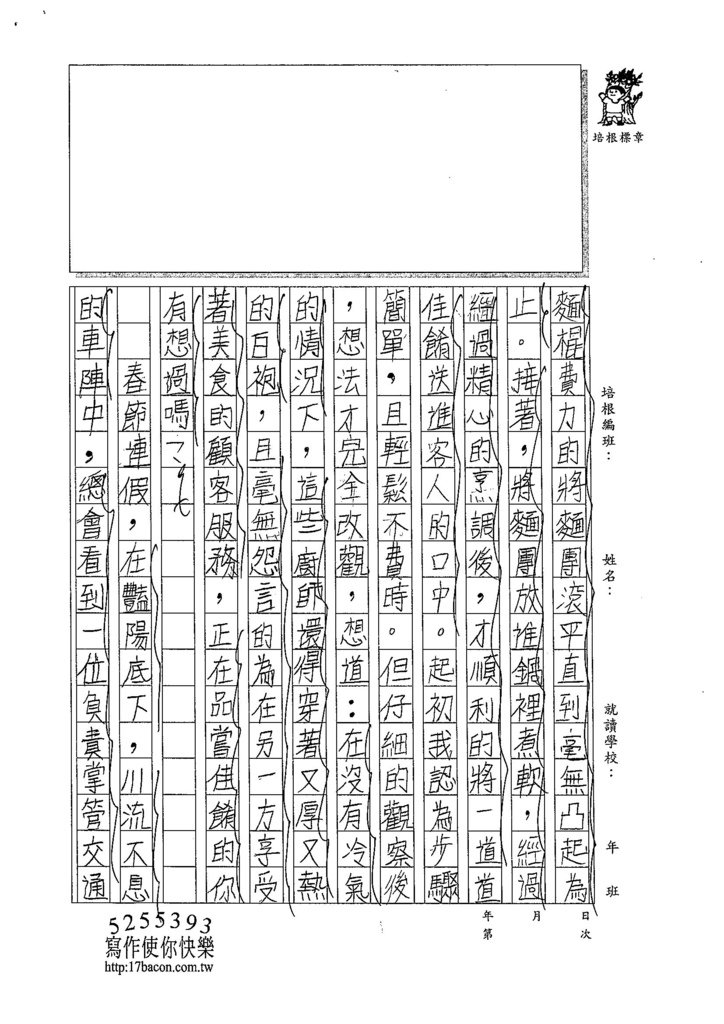 培根標章
培根編班： 姓名： 就讀學校： 年 班
年 月 日
第 次
麵棍費力的將麵團滾平直到毫無凸起為
止。接著，將麵團放進鍋裡煮軟，經過
經過精心的烹調後，才順利的將一道道
佳餚送進客人的口中。起初我認為步驟
簡單，且輕鬆不費時。但仔細的觀察後
，想法才完全改觀，想道：在沒有冷氣
的情況下，這些廚師還得穿著又厚又熱
的白袍，且毫無怨言的為在另一方享受
著美食的顧客服務，正在品嘗佳餚的你
有想過嗎？
春節連假，在豔陽底下，川流不息
的車陣中，總會看到一位負責掌管交通
5255393
寫作使你快樂
http:17bacon.com.tw